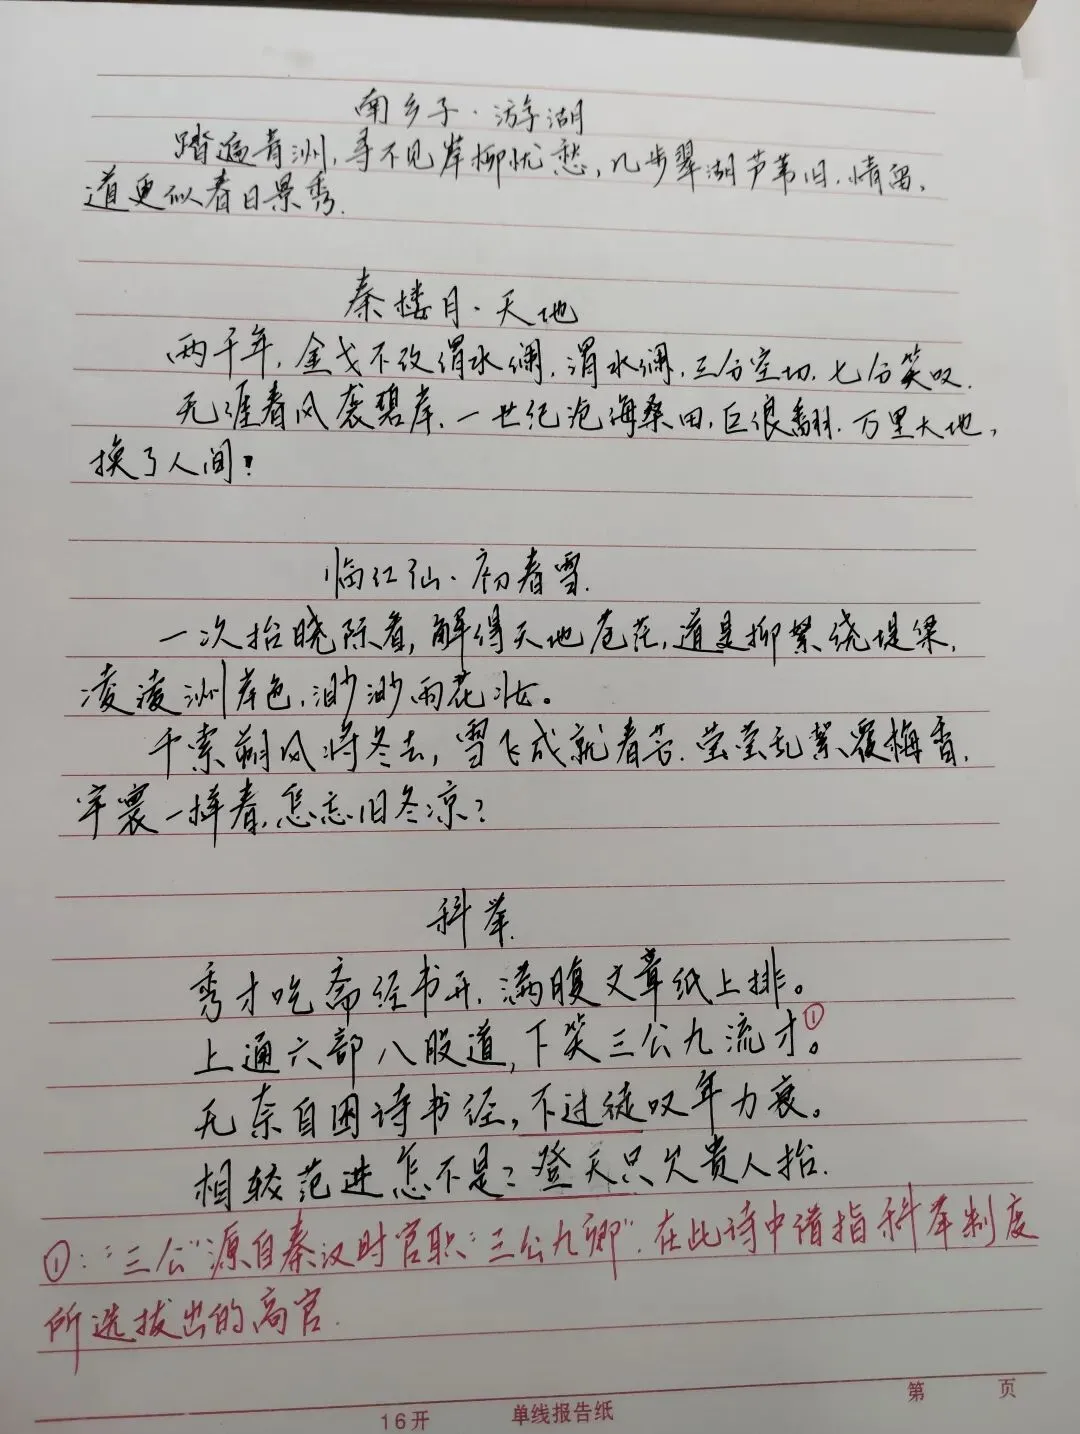 南乡子·游湖
踏遍青洲,寻不见岸柳忧愁,几步翠湖芦苇旧.情留,
道更似春日景秀.
秦楼月·天地
两千年,金戈不改渭水澜,渭水澜,三分空切,七分笑叹.
无涯春风袭碧岸.一世纪沧海桑田,巨浪翻.万里大地,
换了人间?
临江仙·初春雪.
一次抬晓际看,解得天地苍茫,道是柳絮绕堤梁,
凌凌洲岸色,渺渺雨花妆。
千索朔风将冬去,雪飞成就春苦.莹莹乱絮覆梅香,
牢寰一捧春,怎忘旧冬凉?
科举.
秀才吃斋经书开,满腹文章纸上排。
上通六部八股道,下笑三公九流才①。
无奈自困诗书经,不过徒叹年力衰。
相较范进怎不是?登天只欠贵人抬.
①:“三公”源自秦汉时官职“三公九卿”.在此诗中谱指科举制度
所选拔出的高官.
16开 单线报告纸 第 页